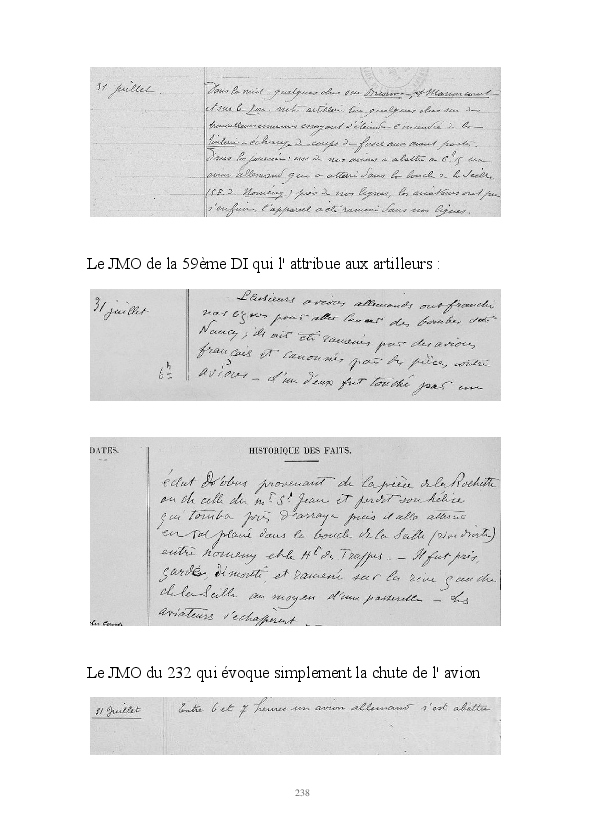 31 juillet.
Dans la nuit quelques obus sur
et sur le artillerie tire quelques obus sur des
travailleurs ennemis essayant d'éteindre l'incendie de la
échange de coups de fusil aux avant postes.
Dans la journée un de nos avions a abattu un
avion allemand qui a atterri dans la boucle de la Seille
Nomény) près de nos lignes, les aviateurs ont pu
s'enfuir, l'appareil a été ramené dans nos lignes.
Le JMO de la 59ème DI qui l' attribue aux artilleurs :
31 juillet
Plusieurs avions allemands ont franchi
nos lignes pour aller lancer des bombes sur
Nancy; ils ont été ramenés par des avions
français et canonnés par les pièces contre
6h
avions — L'un d'eux fut touché par un
DATES.
HISTORIQUE DES FAITS.
éclat d'obus provenant de la pièce de la Rochette
ou de celle du Mt St Jean et perdit son hélice
qui tomba près d'arraye puis il alla atterrir
en vol plané dans la boucle de la Seille (rive droite)
entre nomeny et le des Trappes. — Il fut pris,
gardé, démonté et ramené sur la rive gauche
de la Seille au moyen d'une passerelle — Les
aviateurs s'échappèrent
Le JMO du 232 qui évoque simplement la chute de l' avion
31 Juillet
Entre 6 et 7 heures un avion allemand s'est abattu
238